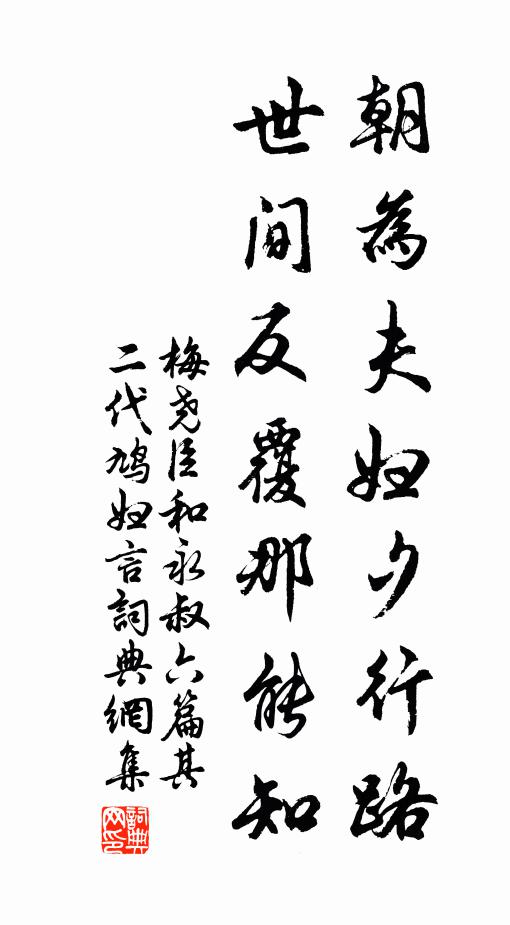 朝為夫妇夕行路
世间反覆那能知
梅尧臣和永叔六篇其
二代鸠妇言詞典網集
詞典网印